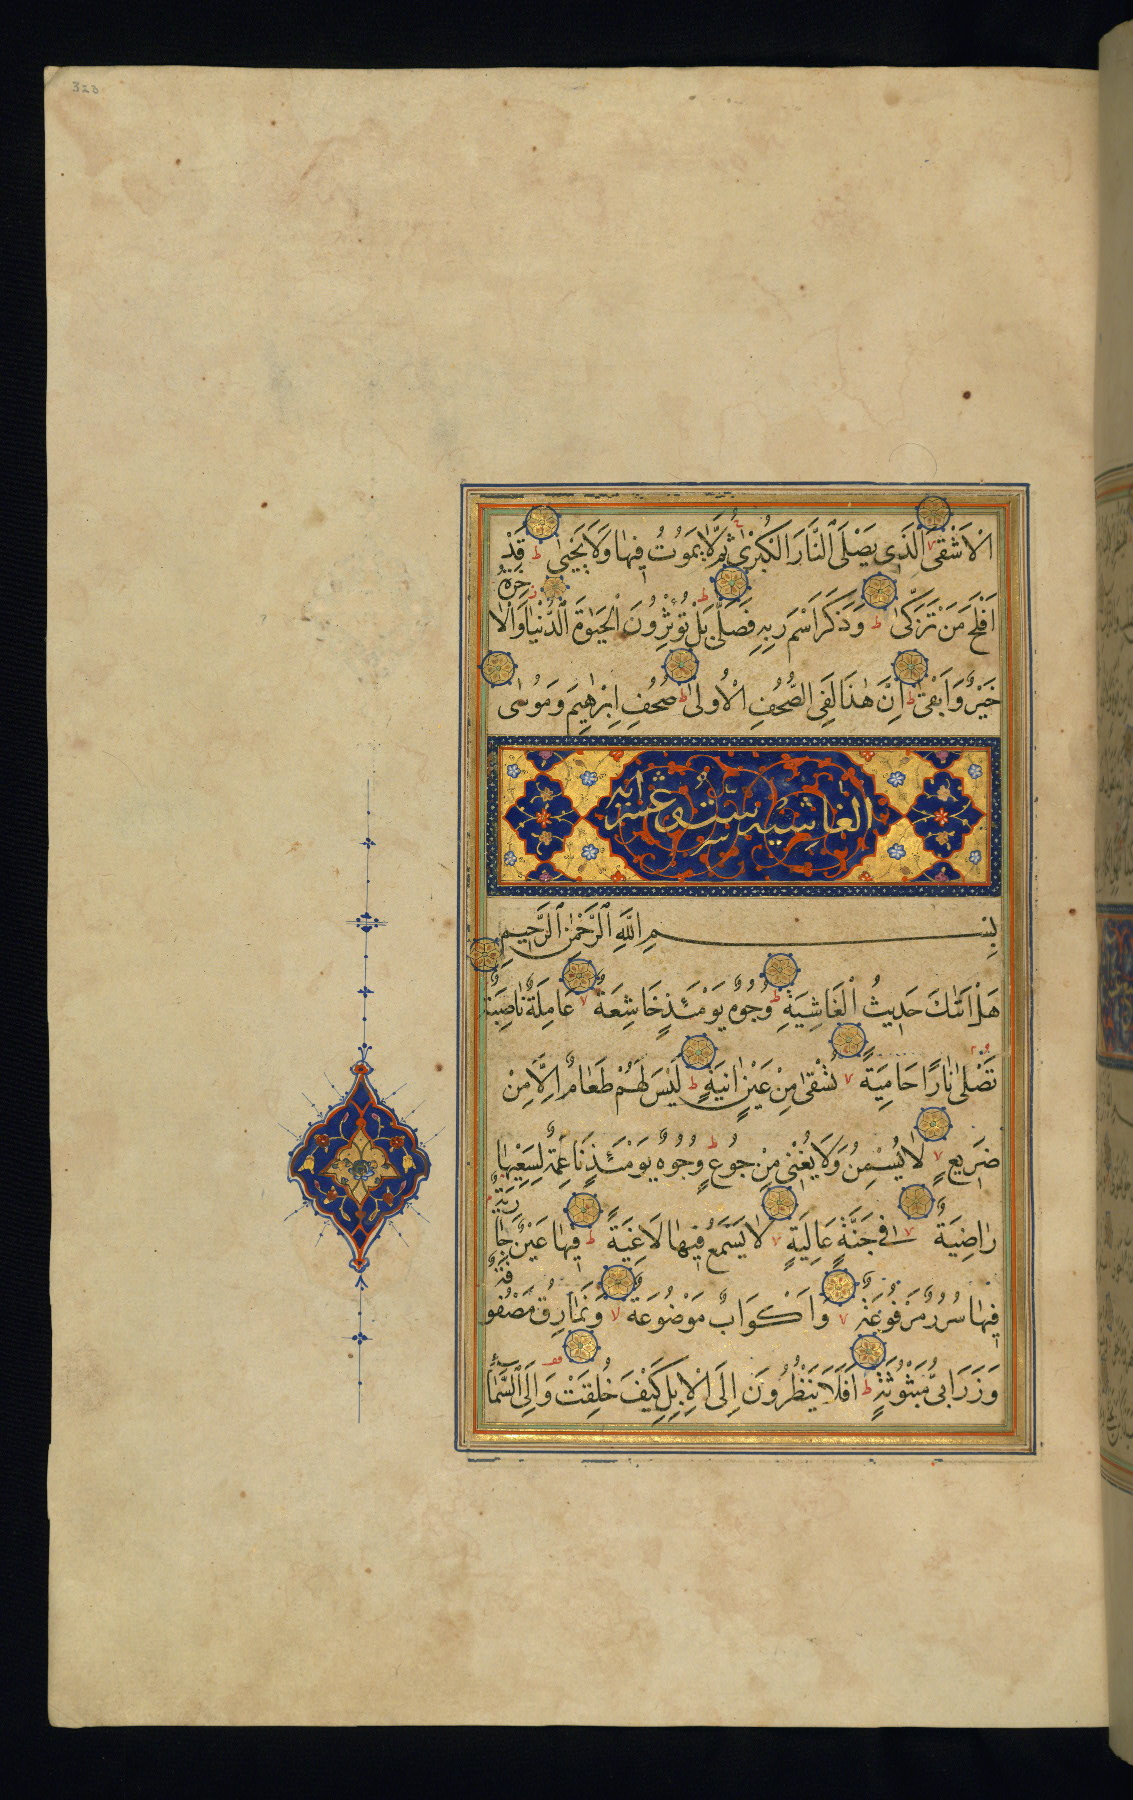 320
الْاَشْقَى الَّذِي يَصْلَى النَّارَ الْكُبْرٰى ثُمَّ لَا يَمُوتُ فِيهَا وَلَا يَحْيٰى ط قَدْ
اَفْلَحَ مَنْ تَزَكّٰى ط وَذَكَرَ اسْمَ رَبِّهِ فَصَلّٰى ط بَلْ تُؤْثِرُونَ الْحَيٰوةَ الدُّنْيَا ز وَالْاٰخِرَةُ
خَيْرٌ وَاَبْقٰى ط اِنَّ هٰذَا لَفِي الصُّحُفِ الْاُولٰى ط صُحُفِ اِبْرٰهِيمَ وَمُوسٰى
الغاشيه ست وعشر ايه
بِسْمِ اللّٰهِ الرَّحْمٰنِ الرَّحِيمِ
هَلْ اَتٰىكَ حَدِيثُ الْغَاشِيَةِ ط وُجُوهٌ يَوْمَئِذٍ خَاشِعَةٌ لا عَامِلَةٌ نَاصِبَةٌ
تَصْلٰى نَارًا حَامِيَةً لا تُسْقٰى مِنْ عَيْنٍ اٰنِيَةٍ ط لَيْسَ لَهُمْ طَعَامٌ اِلَّا مِنْ
ضَرِيعٍ لا لَا يُسْمِنُ وَلَا يُغْنِي مِنْ جُوعٍ ط وُجُوهٌ يَوْمَئِذٍ نَاعِمَةٌ لِسَعْيِهَا
رَاضِيَةٌ لا فِي جَنَّةٍ عَالِيَةٍ لا لَا يَسْمَعُ فِيهَا لَاغِيَةً ط فِيهَا عَيْنٌ جَارِيَةٌ
فِيهَا سُرُرٌ مَرْفُوعَةٌ لا وَاَكْوَابٌ مَوْضُوعَةٌ لا وَنَمَارِقُ مَصْفُوفَةٌ
وَزَرَابِيُّ مَبْثُوثَةٌ ط اَفَلَا يَنْظُرُونَ اِلَى الْاِبِلِ كَيْفَ خُلِقَتْ وَاِلَى السَّمَاءِ